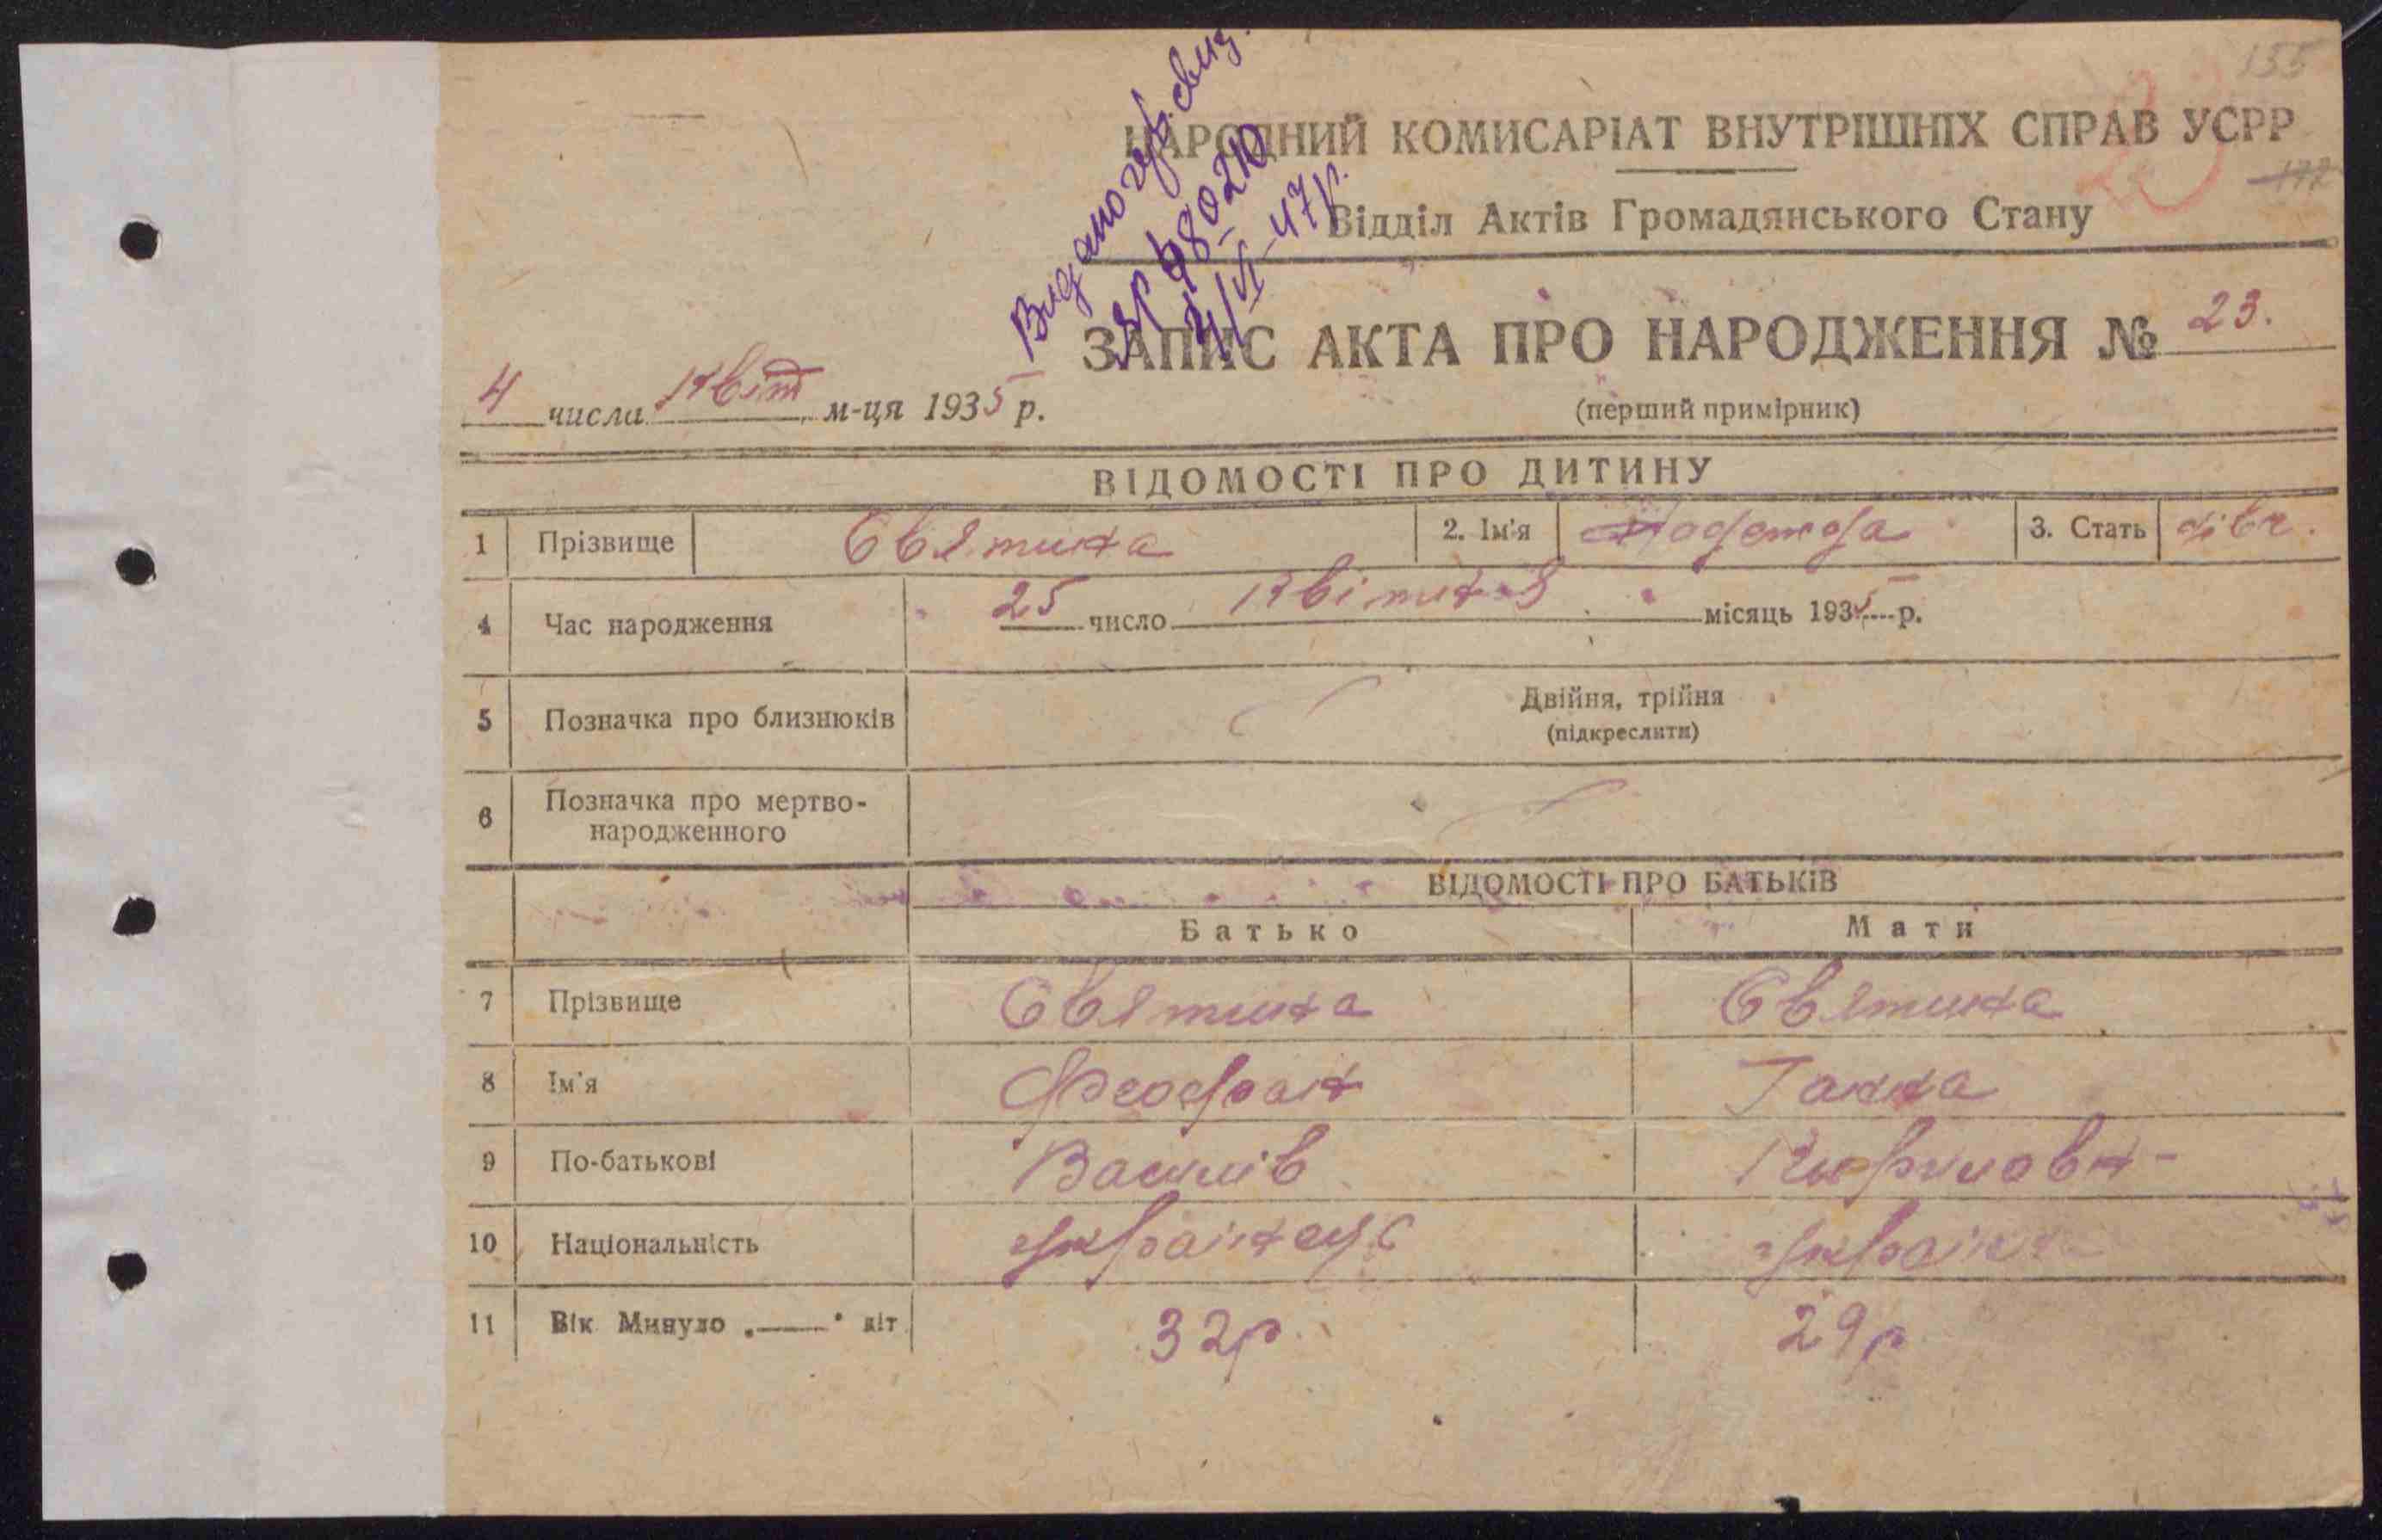 155
НАРОДНИЙ КОМИСАРІАТ ВНУТРІШНІХ СПРАВ УСРР
23
177
Відділ Актів Громадянського Стану
Видано
980240
4/VI-47р.
ЗАПИС АКТА ПРО НАРОДЖЕННЯ № 23.
4 числа квіт м-ця 1935 р.
(перший примірник)
ВІДОМОСТІ ПРО ДИТИНУ
1 Прізвище Святина 2. Ім'я 3. Стать дівч.
4 Час народження 25 число квітня місяць 1935 р.
5 Позначка про близнюків Двійня, трійня
(підкреслити)
6 Позначка про мертво-
народженного
ВІДОМОСТІ ПРО БАТЬКІВ
Батько Мати
7 Прізвище Святина Святина
8 Ім'я Феофан Ганна
9 По-батькові Василів
10 Національність українець українка
11 Вік Минуло „——“ літ 32р. 29р